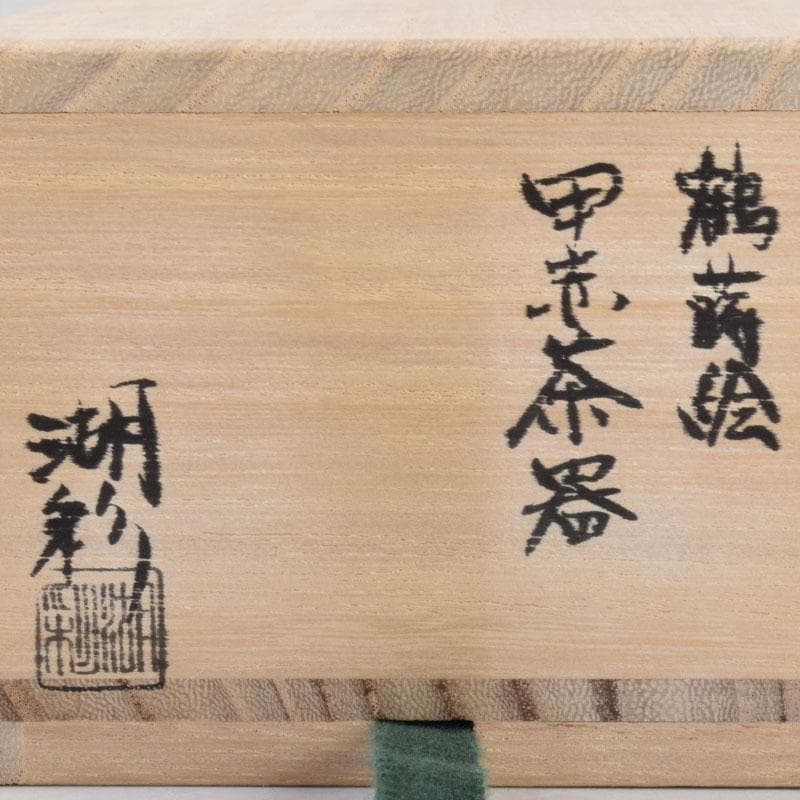 鶴蒔絵
甲赤茶器
湖彩